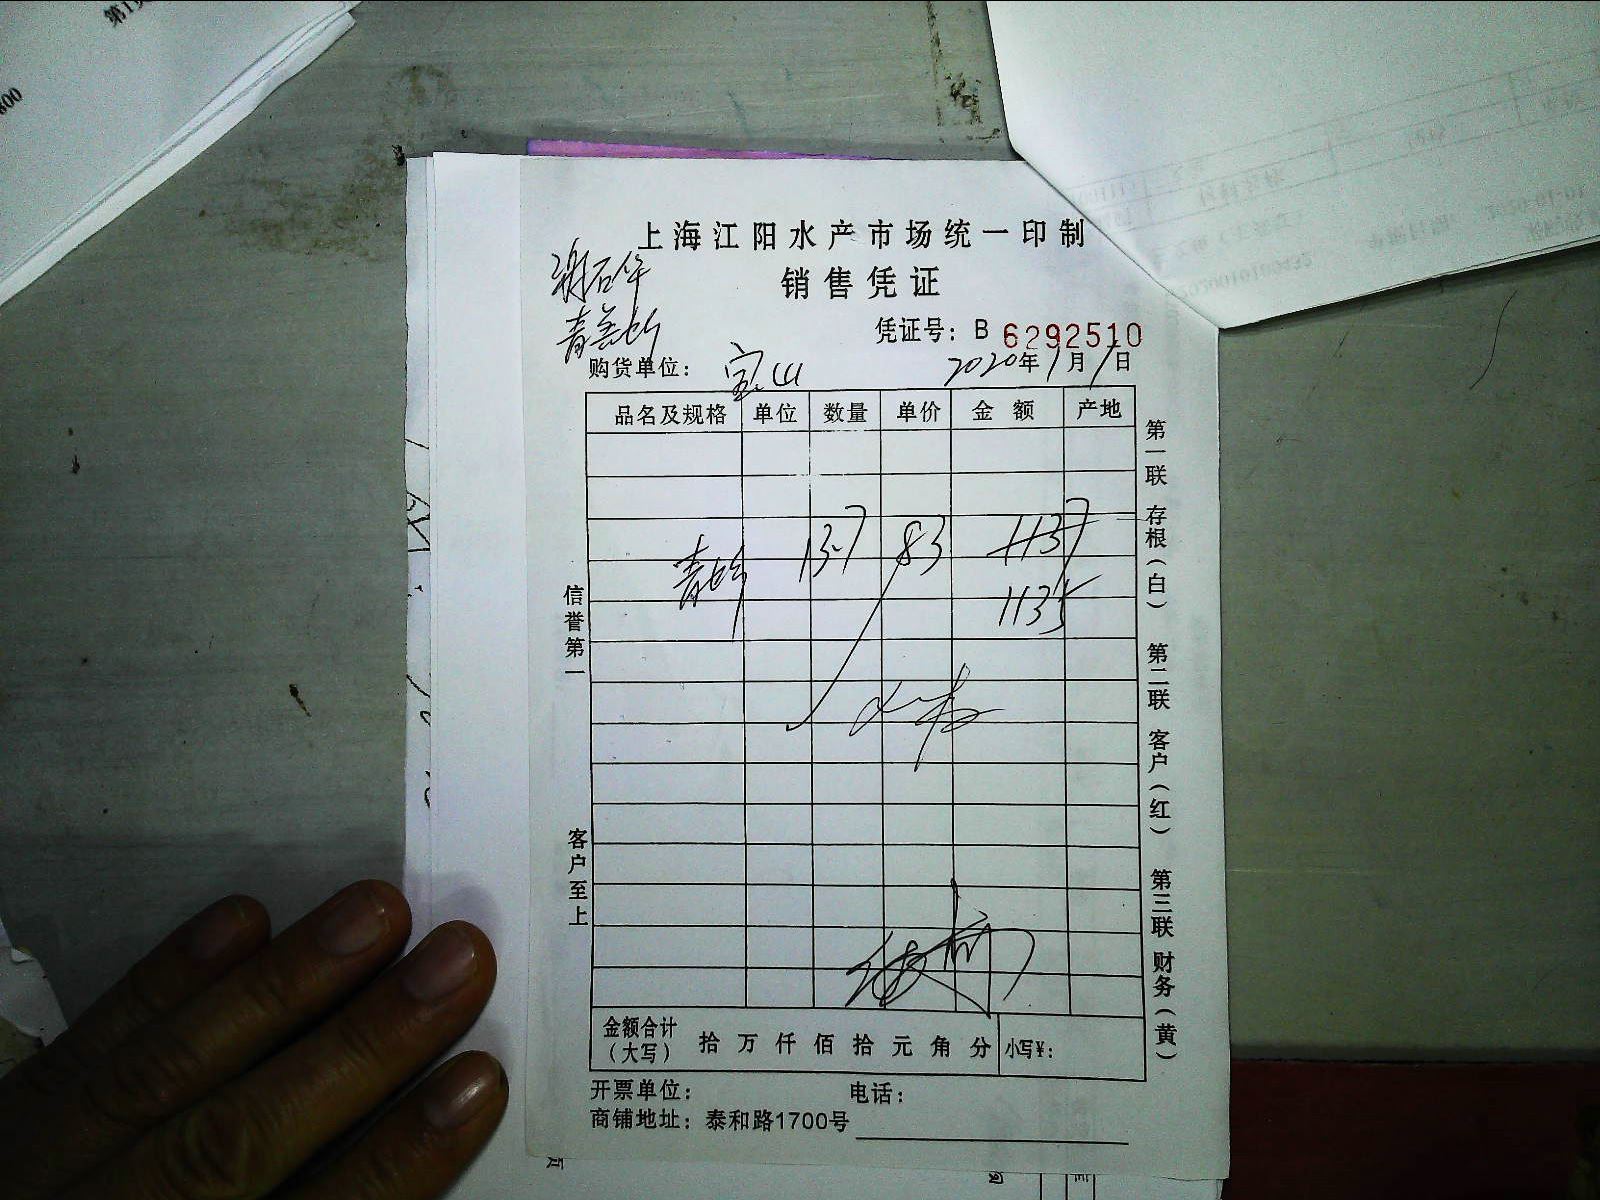 上海江阳水产市场统一印制
销售凭证
凭证号：B 6292510
购货单位：宝山 2020年1月1日
品名及规格 单位 数量 单价 金额 产地
13.7 83 1137
1135
信誉第一
客户至上
第一联 存根（白） 第二联 客户（红） 第三联 财务（黄）
金额合计（大写） 拾 万 仟 佰 拾 元 角 分 小写¥：
开票单位： 电话：
商铺地址：泰和路1700号